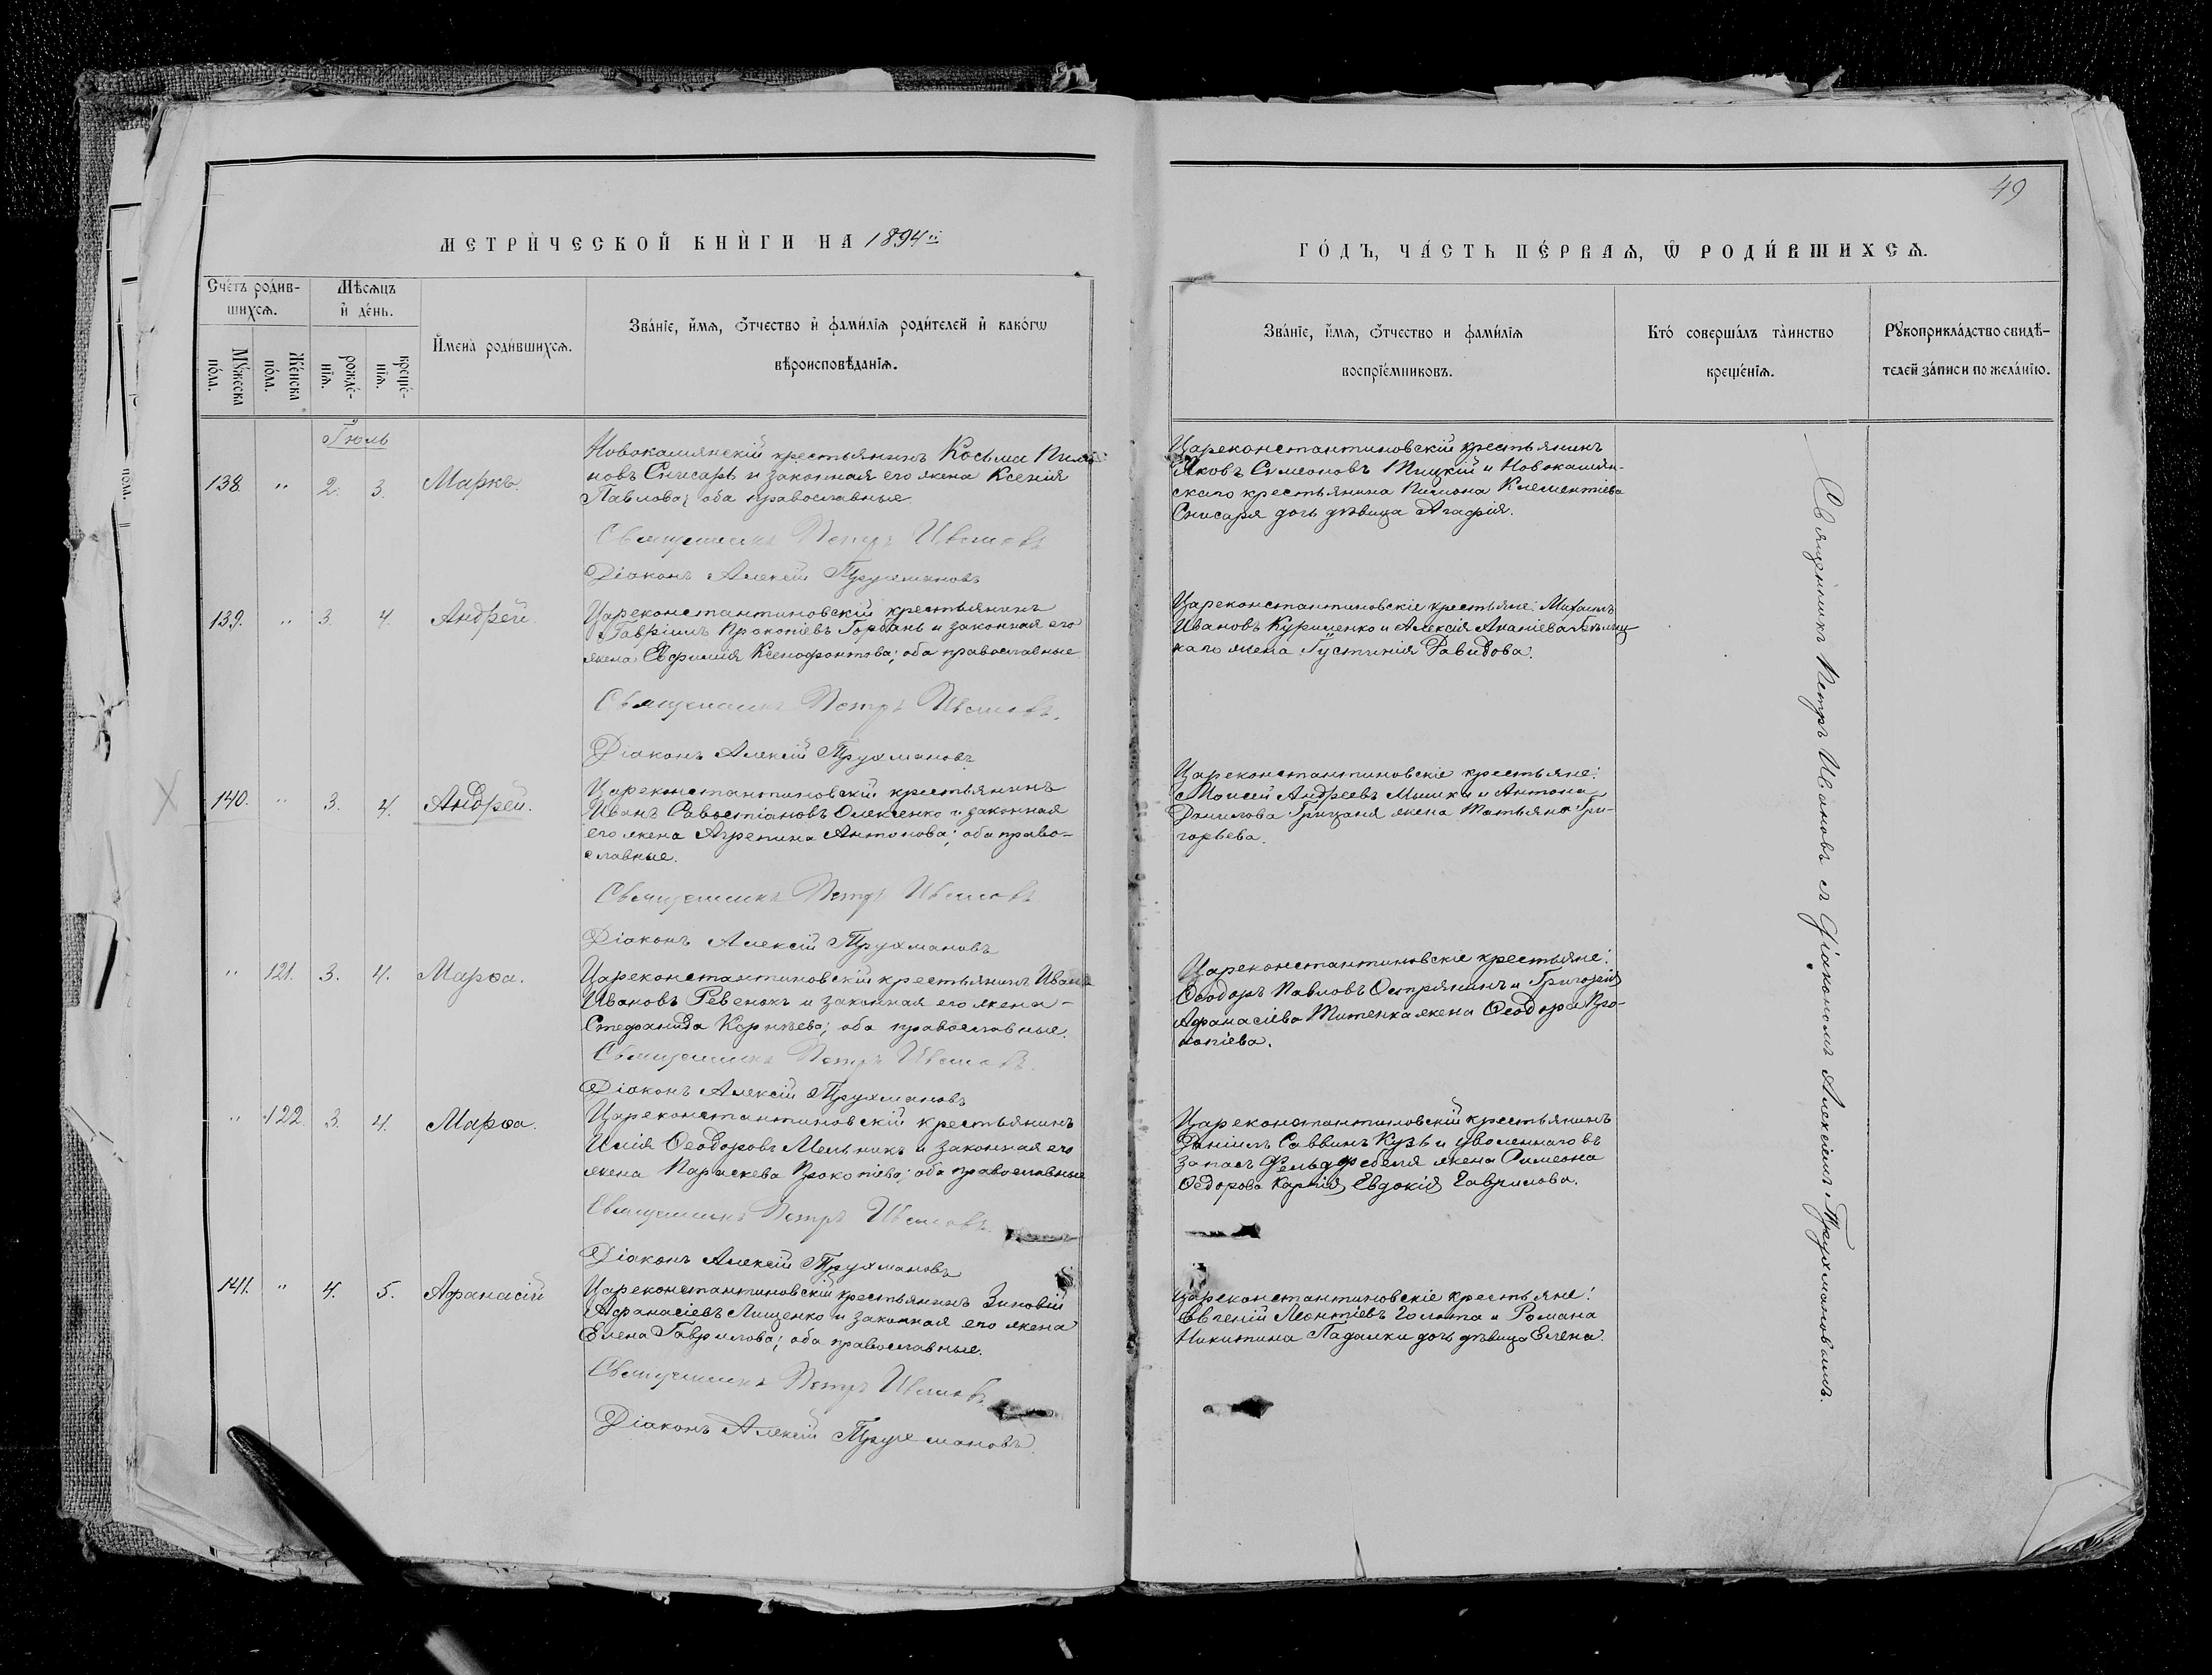 49
МЕТРИ́ЧЕСКОЙ КНИ́ГИ НА 1894й
ГО́ДЪ, ЧА́СТЬ ПЕ́РВАѦ, Ѿ РОДИ́ВШИХСѦ.
Сче́тъ роди́в-
шихсѧ.
Мѣ́сѧцъ
и҆ де́нь.
Мꙋ́жеска
по́ла.
Же́нска
по́ла.
рожде́-
нїѧ.
креще́-
нїѧ.
И҆мена̀ роди́вшихсѧ.
Зва́нїе, и҆́мѧ, ѻ҆́тчество и҆ фами́лїѧ роди́телей и҆ како́гѡ
вѣроисповѣ́данїѧ.
Зва́нїе, и҆́мѧ, ѻ҆́тчество и фами́лїѧ
воспрїе́мниковъ.
Кто́ соверша́лъ та́инство
креще́нїѧ.
Рꙋкоприкла́дство свидѣ́-
телей за́писи по жела́нїю.
Іюль
138. " 2. 3. Маркъ.
Новокамянскій крестьянинъ Косьма Пиме-
новъ Снисарь и законная его жена Ксенія
Павлова; оба православные
Священникъ Петръ Ивановъ
Діаконъ Алексій Трухмановъ
Цареконстантиновскій крестьянинъ
Яковъ Симеоновъ Пицкій и Новокамян-
скаго крестьянина Пимона Климентіева
Снисаря дочь дѣвица Агафія.
139. " 3. 4. Андрей.
Цареконстантиновскій крестьянинъ
Гавріилъ Прокопіевъ Горбань и законная его
жена Евфимія Ксенофонтова; оба православные
Священникъ Петръ Ивановъ.
Діаконъ Алексій Трухмановъ
Цареконстантиновскіе крестьяне: Михаилъ
Ивановъ Куриленко и Алексія Ананіева
каго жена Іустинія Давидова.
140. " 3. 4. Андрей.
Цареконстантиновскій крестьянинъ
Иванъ Савостіановъ Олексенко и законная
его жена Агрепина Антонова; оба право-
славные.
Священникъ Петръ Ивановъ
Діаконъ Алексій Трухмановъ
Цареконстантиновскіе крестьяне:
Моисей Андреевъ Мышка и Антона
Данилова Грицаня жена Татьяна Гри-
горьева.
" 121. 3. 4. Марѳа.
Цареконстантиновскій крестьянинъ Иванъ
Ивановъ Ревенокъ и законная его жена
Стефанида Корнѣева; оба православные.
Священникъ Петръ Ивановъ.
Діаконъ Алексій Трухмановъ
Цареконстантиновскіе крестьяне:
Ѳеодоръ Павловъ Остряпинъ и Григорія
Афанасіева Титенка жена Ѳеодора Про-
копіева.
" 122 3. 4. Марѳа.
Цареконстантиновскій крестьянинъ
Илія Ѳеодоровъ Мельникъ и законная его
жена Параскева Прокопіева; оба православные
Священникъ Петръ Ивановъ.
Діаконъ Алексій Трухмановъ
Цареконстантиновскій крестьянинъ
Даніилъ Саввинъ Кузь и уволеннаго въ
запасъ Фельдфебеля жена Симеона
Ѳедорова Карпія Евдокія Гаврилова.
141. " 4. 5. Афанасій
Цареконстантиновскій крестьянинъ Зиновій
Афанасіевъ Лищенко и законная его жена
Елена Гаврилова; оба православные.
Священникъ Петръ Ивановъ.
Діаконъ Алексій Трухмановъ.
Цареконстантиновскіе крестьяне:
Евгеній Леонтіевъ Голота и Романа
Никитина Падалки дочь дѣвица Елена.
Священникъ Петръ Ивановъ съ Діакономъ Алексіемъ Трухмановымъ.